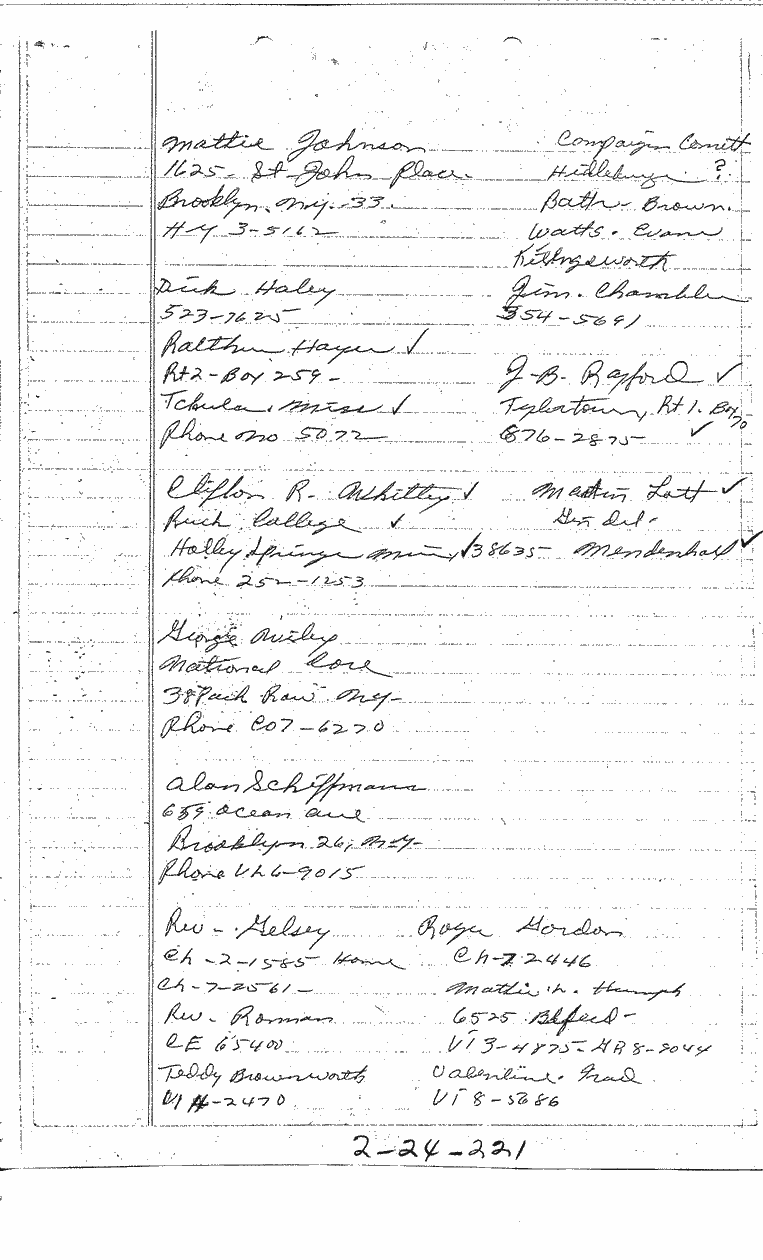 Mattie Johnson
1625 - St John Place.
Brooklyn. N.Y. 33.
HY 3-5162
Dick Haley
523-7625
Ralthus Hayes ✓
Rt 2 - Box 259 -
Tchula, Miss ✓
Phone no 5072
Clifton R. Whitley ✓
Rush College ✓
Holley Springs Miss, ✓ 38635
Phone 252-1253
George
National Core
38 Park Row N.Y-
Phone CO7-6270
Alan Schiffmann
659 Ocean Ave
Brooklyn 26, N-Y-
Phone UL6-9015
Rev - Gelsey
Ch-2-1585 Home
Ch-7-2561-
Rev - Roman
CE 65400
Teddy Brownworth
VI 4-2470
Campaign Comitt
?
Bath - Brown.
Watts - Evans
Killingsworth
Jim. Chamblee
354-5691
J-B. Rayford ✓
Tylertown, Rt 1. Box 70
876-2875 ✓
Martin Lott ✓
Gen Del -
Mendenhall ✓
Roger Gordon
Ch-7 2446
Mattie. w. Humph
6525
VI 3-4875-GR8-9044
Valentine.
VI 8-5686
2-24-221